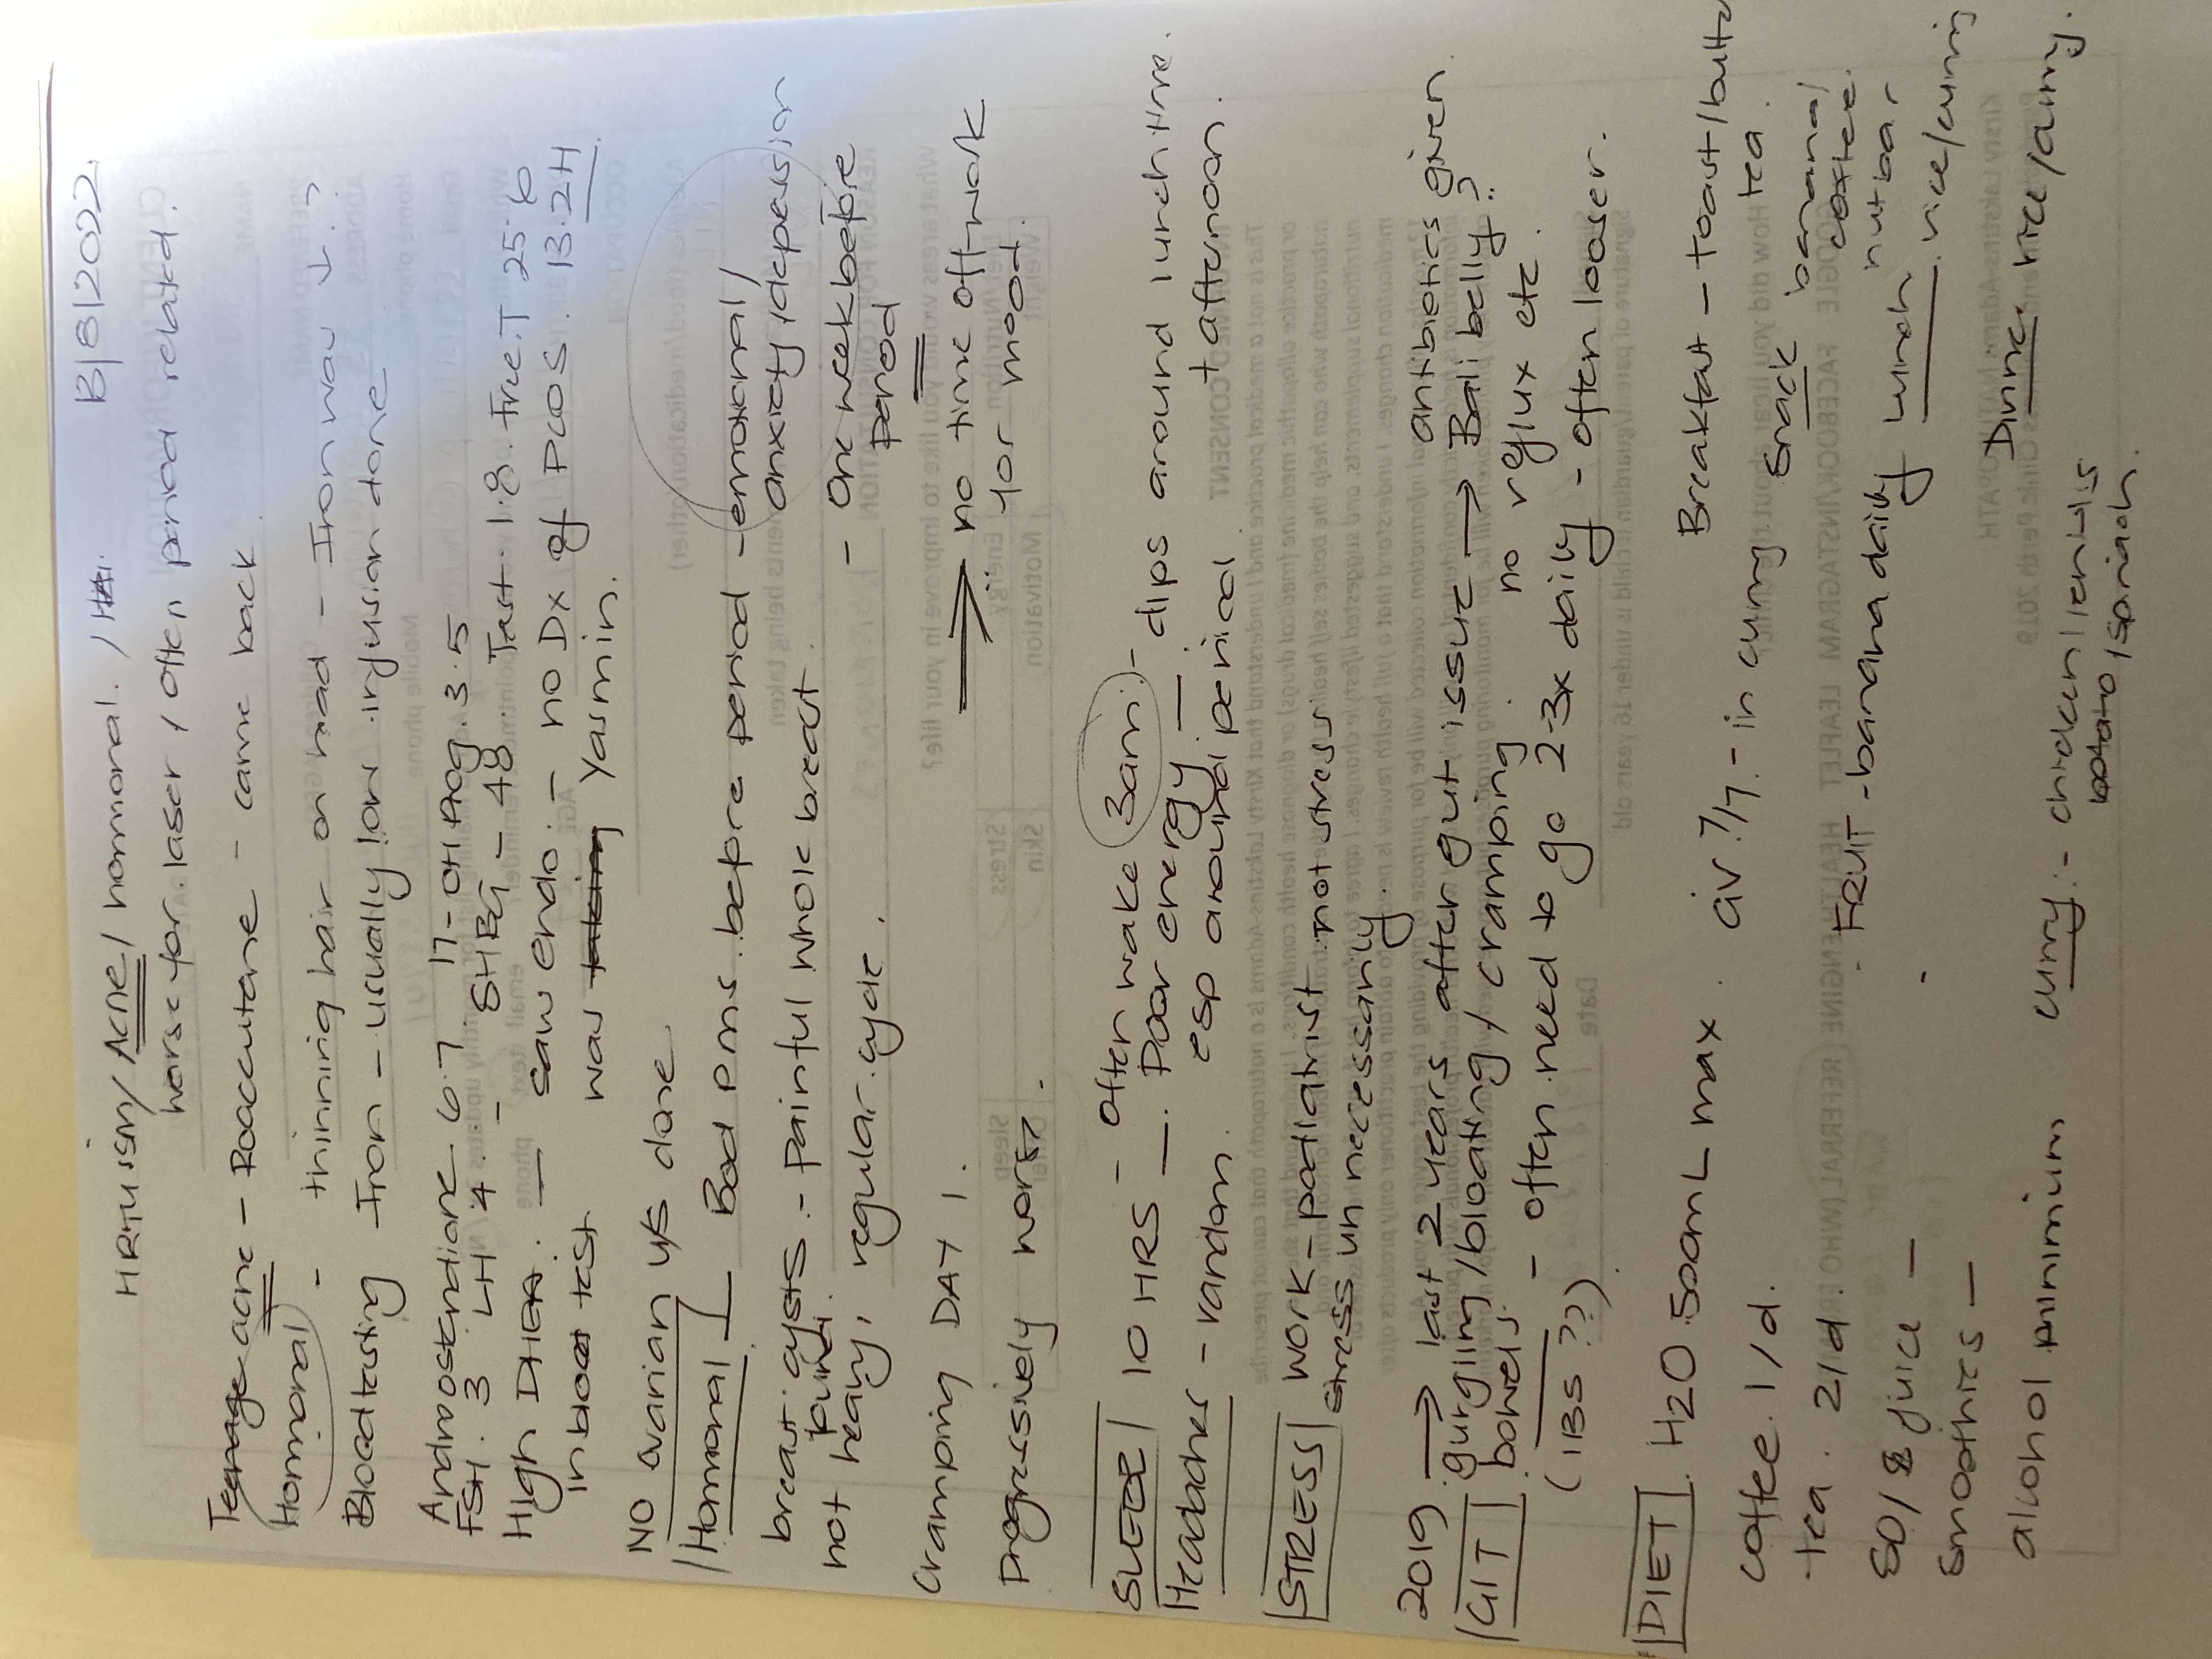 HIRTUISSM/ Acne/ hormonal. / 13/8/2022.
worse for laser / often period related.
Teenage acne - Roaccutane - came back
Hormonal - thinning hair on head - Iron was ↓.?
Blood testing Iron - usually low infusion done
Androstendione - 6.7 17-OH Prog. 3.5
FSH. 3 LH 4 - SHBG - 48. Test 1.8. free.T 25.6
High DHEA. — saw endo. - no Dx of PCOS. 13.2H
in blood test was taking Yasmin.
NO ovarian u/s done
Hormonal Bad pms. before period - emotional/
anxiety/depression
breast cysts. - Painful whole breast. - One week before
found. period
not heavy, regular cycle. ⇒ no time off work
for mood.
Cramping DAY 1.
Progressively worse.
SLEEP 10 HRS - Often wake 3am. - dips around lunchtime.
— . Poor energy — + afternoon.
Headaches - random. esp around period
STRESS work - podiatrist not stress
stress unnecessarily.
2019 → last 2 years after gut issue → antibiotics given
Bali belly??
GIT gurgling/bloating / cramping. no reflux etc.
bowels. - often need to go 2-3x daily - often looser.
(IBS??)
DIET H2O 500mL max. div 7/7. - in curry
Breakfast - toast/butter
tea.
Coffee. 1/d. snack banana/
coffee.
tea. 2/d. FRUIT - banana daily nut bar
SD/ juice - Lunch. rice/curry
Smoothies - Dinner. rice/curry.
alcohol minimum curry: - chicken/lentils
potato/spinach.